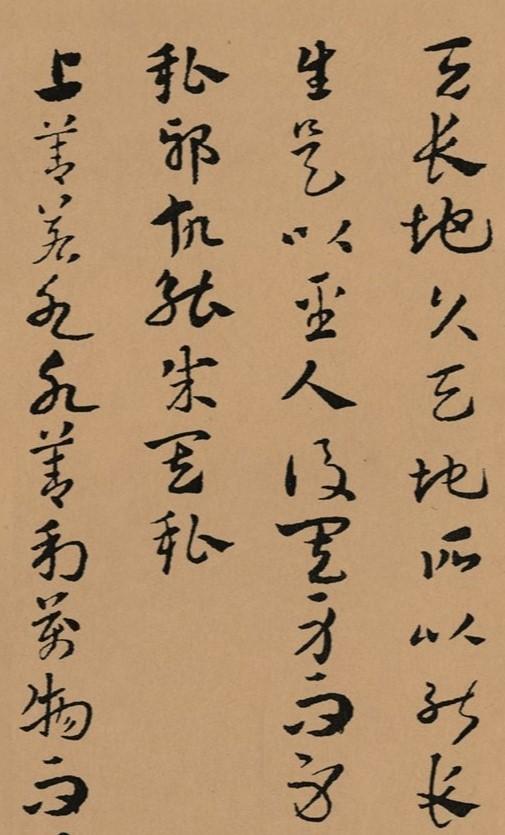 天長地久天地所以能長
生是以聖人後其身而身
私邪故能成其私
上善若水水善利萬物而